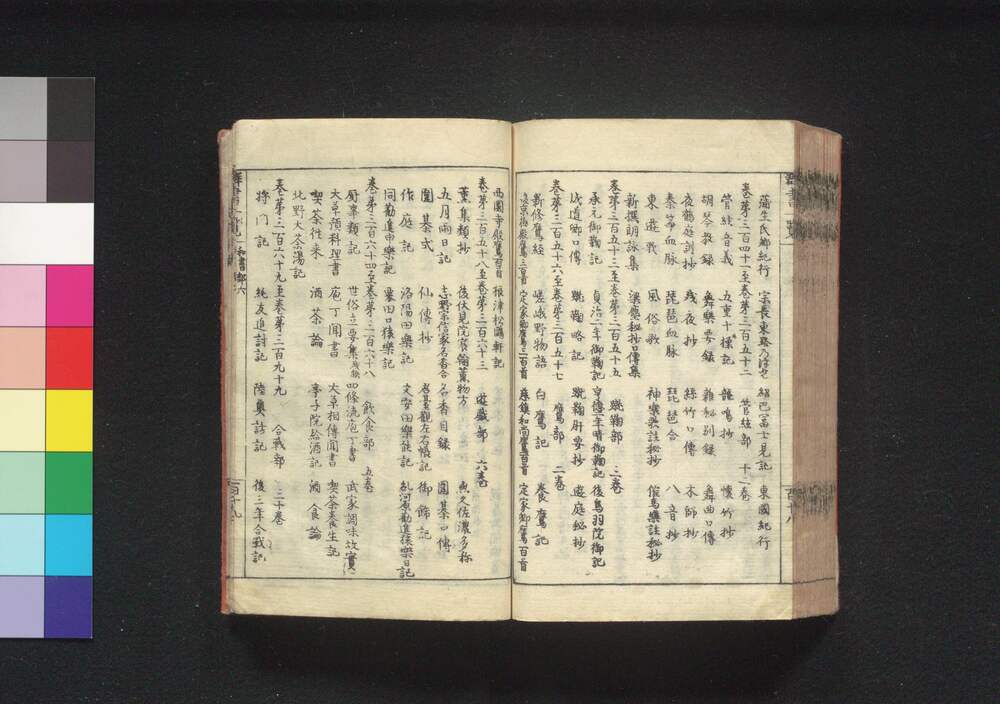 蒲生氏郷紀行 宗長東路乃津登 紹巴冨士見記 東國紀行
巻第三百四十一至巻第三百五十二 管絃部 十二巻
管絃音義 五重十操記 龍鳴抄 懐竹抄
胡琴教録 舞樂要録 雜秘別録 舞曲口傳
夜鶴庭訓抄 殘夜抄 絲竹口傳 木師抄
秦箏血脉 琵琶血脉 琵琶合 八音抄
東遊歌 風俗歌 神樂歌註秘抄 催馬樂註秘抄
新撰朗詠集 梁塵秘抄口傳集
巻第三百五十三至巻第三百五十五 蹴鞠部 三巻
承元御鞠記 貞治二年御鞠記 享德二年晴御鞠記 後鳥羽院御記
成道卿口傳 蹴鞠略記 蹴鞠肝要抄 遊庭秘抄
巻第三百五十六至巻第三百五十七 鷹部 二巻
新修鷹経 嵯峨野物語 白鷹記 養鷹記
後京極殿鷹三百首 定家卿鷹三百首 慈鎮和尚鷹百首 定家卿鷹百首
西園寺殿鷹百首 根津松鷗軒記
巻第三百五十八至巻第三百六十三 遊戯部 六巻
薫集類抄 後伏見院宸翰薫物方 魚文佐濃多称
五月雨日記 志野宗信家名香合 名香目録 圍碁口傳
圍碁式 仙傳抄 君臺觀左右帳記 御餝記
作庭記 洛陽田樂記 文安田樂能記 糺河原勸進猿樂日記
同勸進申樂記 粟田口猿樂記
巻第三百六十四至巻第三百六十八 飲食部 五巻
厨事類記 世俗立要集 四條流庖丁書 武家調味故實
大草殿料理書 庖丁聞書 大草相傳聞書 喫茶養生記
喫茶往来 酒茶論 亭子院給酒記 酒食論
北野大茶湯記
巻第三百六十九至巻第三百九十九 合戰部 三十巻
将門記 純友追討記 陸奥話記 後三年合戰記
群書一覧 和書部六 百十九
百十八